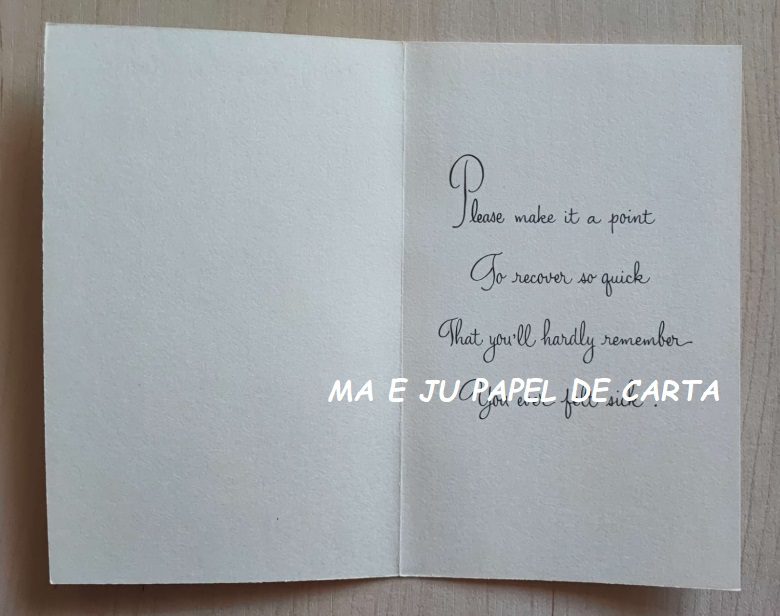 Please make it a point
To recover so quick
That you'll hardly remember
You ever felt sick.
MA E JU PAPEL DE CARTA